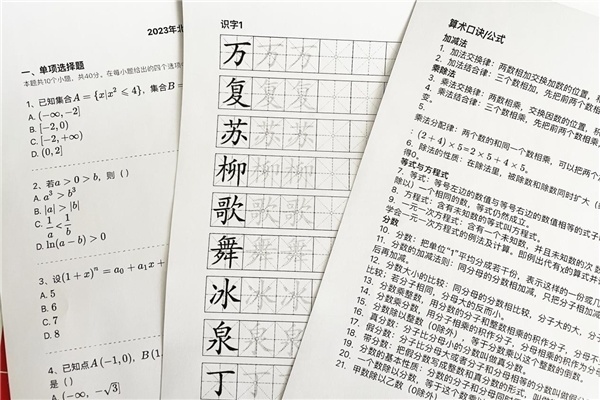 2023年北
一、单项选择题
本题共10个小题，共40分。在每小题给出的四个选项
1、已知集合A = {x|x² ⩽ 4}，集合B =
A. (−∞, −2]
B. [−2, 0)
C. [−2, +∞)
D. (0, 2]
2、若a > 0 > b，则（ ）
A. a³ > b³
B. |a| > |b|
C. 1/a < 1/b
D. ln(a − b) > 0
3、设(1 + x)ⁿ = a₀ + a₁x +
A. 5
B. 6
C. 7
D. 8
4、已知点A(−1, 0)，B(1,
是（ ）
A. (−∞, −√3]
识字1
万万万
复复复
苏苏苏
柳柳柳
歌歌歌
舞舞舞
冰冰冰
泉泉泉
丁丁丁
算术口诀/公式
加减法
1. 加法交换律：两数相加交换加数的位置，和
2. 加法结合律：三个数相加，先把前两个数相
乘除法
3. 乘法交换律：两数相乘，交换因数的位置，积
4. 乘法结合律：三个数相乘，先把前两个数相乘
变。
5.
乘法分配律：两个数的和同一个数相乘，可以把两个
：(2+4)×5=2×5+4×5。
6. 除法的性质：在除法里，被除数和除数同时扩大（
得0。
等式与方程式
7. 等式：等号左边的数值与等号右边的数值相等的式子
除以）一个相同的数，等式仍然成立。
8. 方程式：含有未知数的等式叫方程式。
9. 一元一次方程式：含有一个未知数，并且未知数的次
学会一元一次方程式的例法及计算。即例出代有χ的算式并
分数
10. 分数：把单位“1”平均分成若干份，表示这样的一份或几
11. 分数的加减法则：同分母的分数相加减，只把分子相加减
后再加减。
12. 分数大小的比较：同分母的分数相比较，分子大的大，分子
比较；若分子相同，分母大的反而小。
13. 分数乘整数，用分数的分子和整数相乘的积作分子，分母不
14. 分数乘分数，用分子相乘的积作分子，分母相乘的积作为分母
15. 分数除以整数（0除外），等于分数乘以这个整数的倒数。
16. 真分数：分子比分母小的分数叫做真分数。
17. 假分数：分子比分母大或者分子和分母相等的分数叫做假分
18. 带分数：把假分数写成整数和真分数的形式，叫做
19. 分数的基本性质：分数的分子和分母同时
20. 一个数除以分数，等于这个数乘以
21. 甲数除以乙数（0除外）